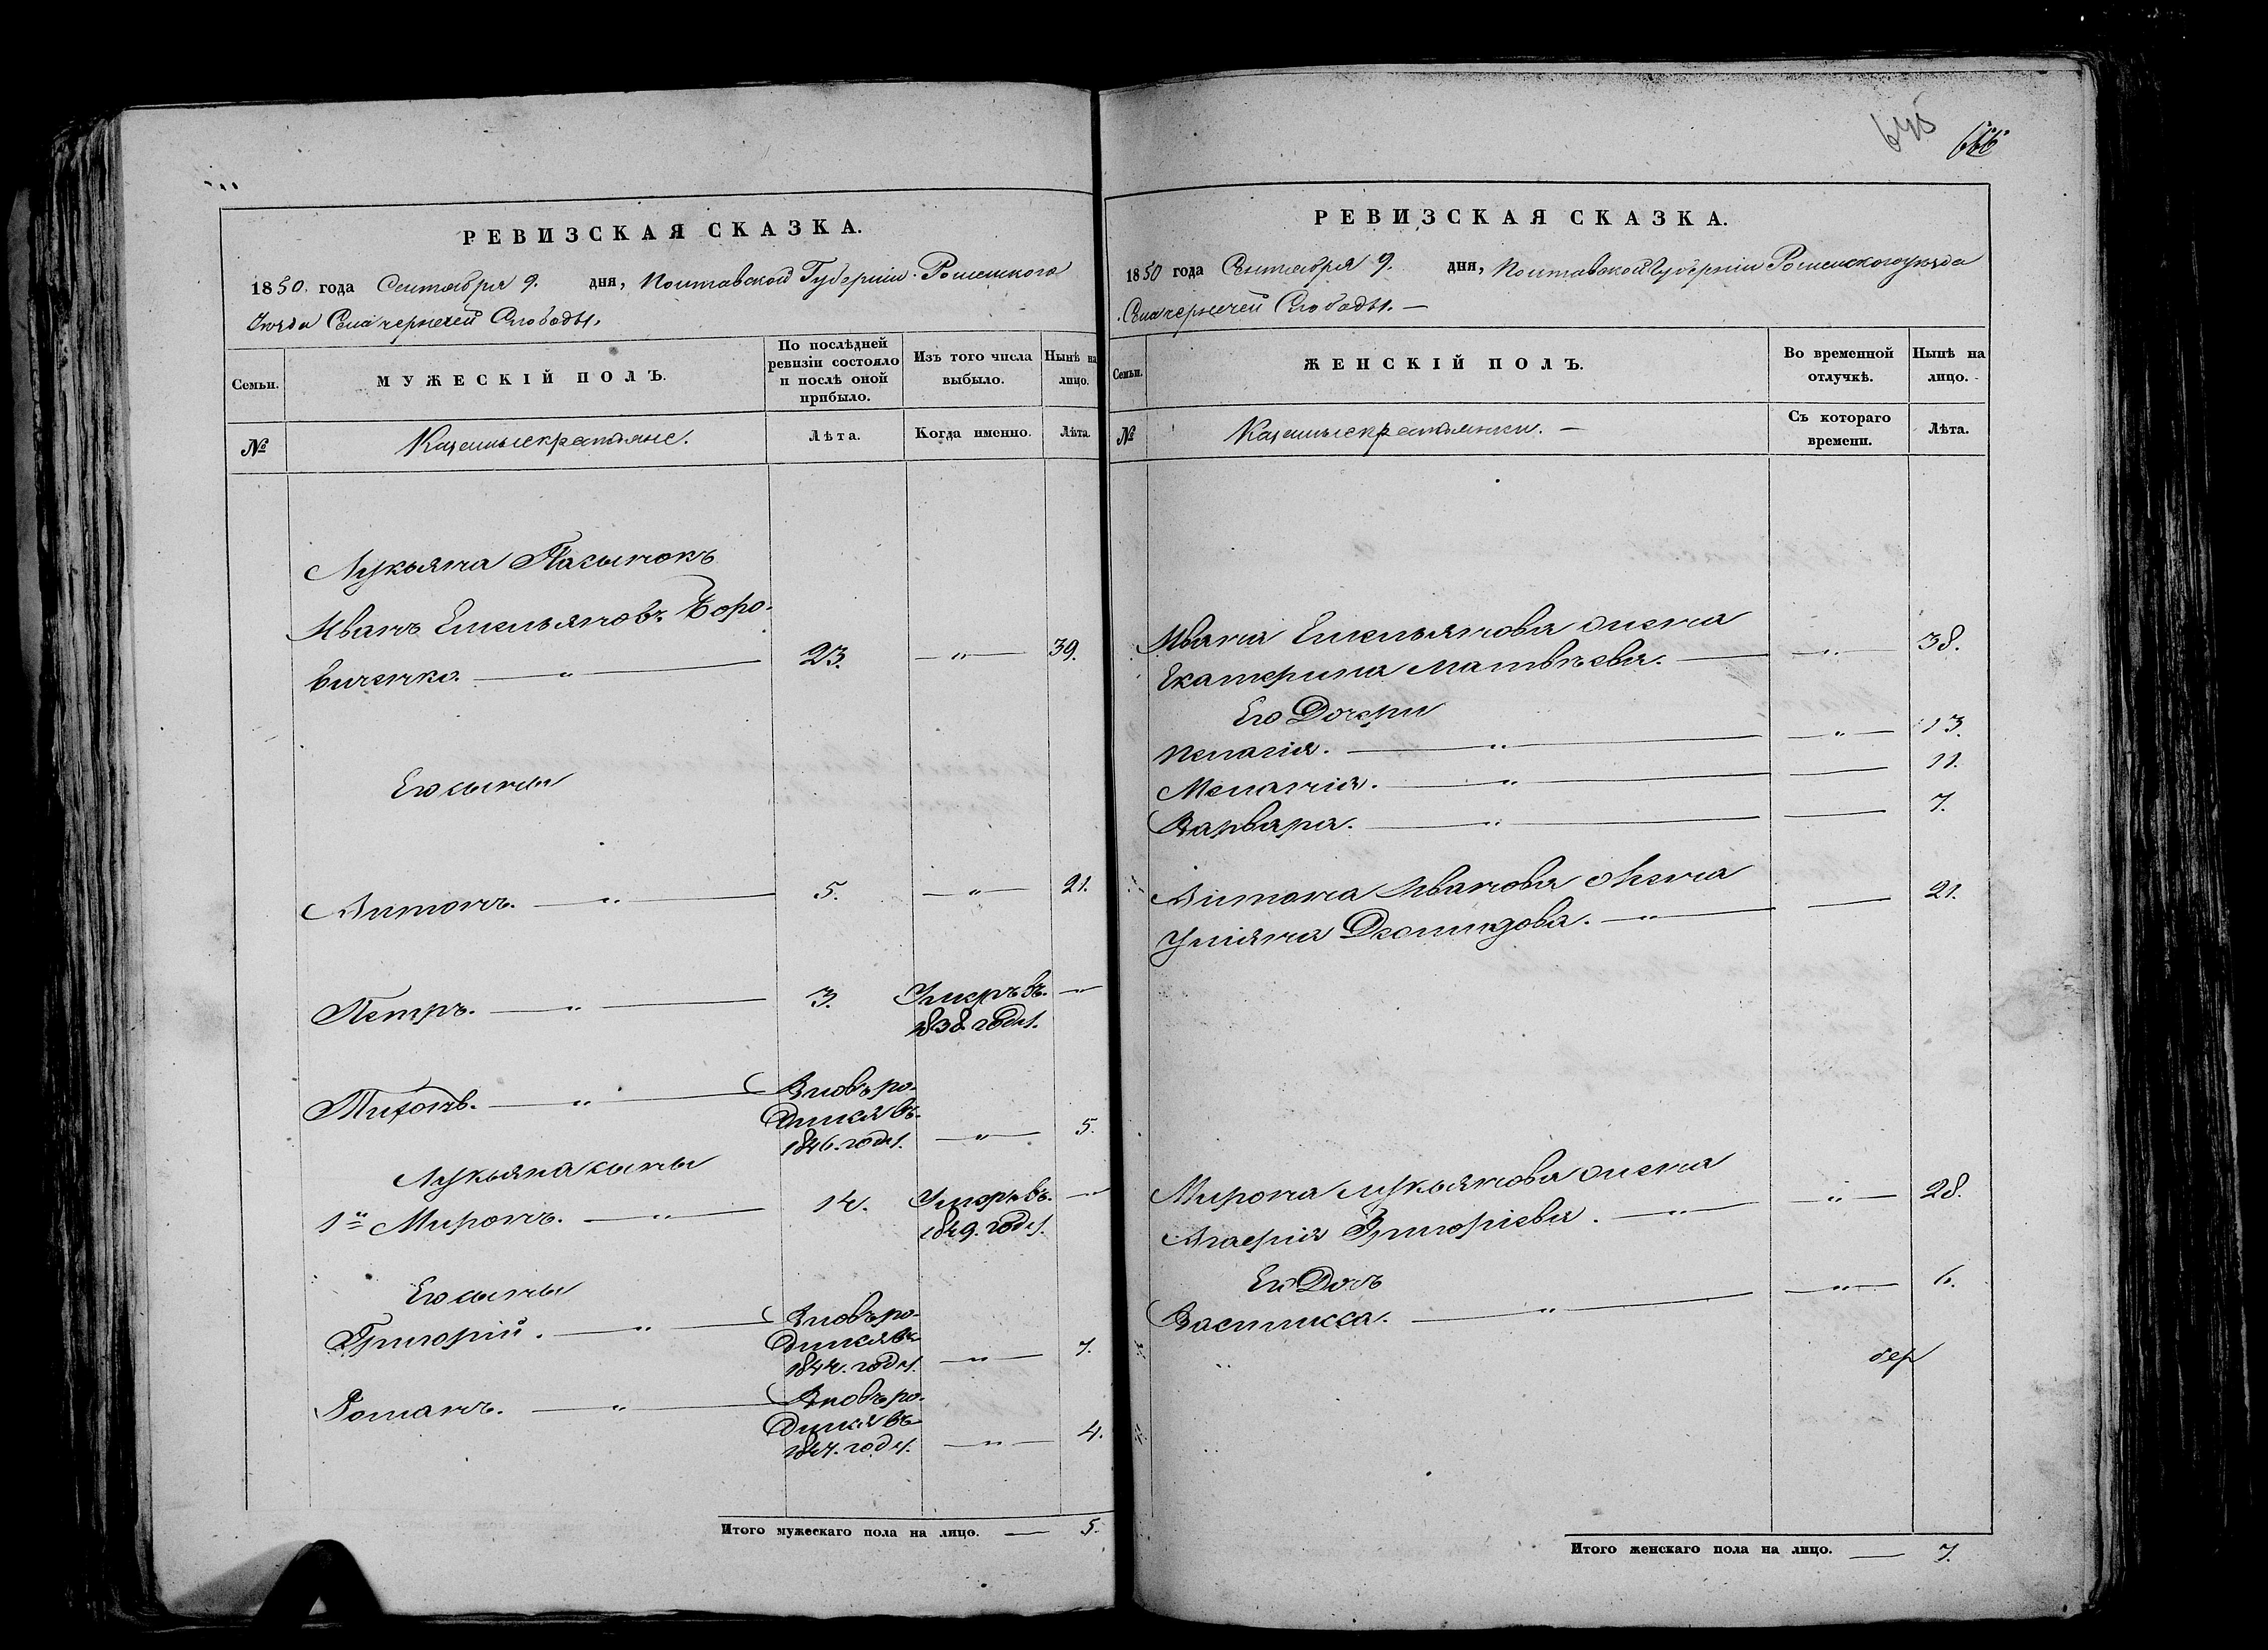 645
666
РЕВИЗСКАЯ СКАЗКА.
1850. года Сентября 9. дня, Полтавской Губерніи Роменского
Уезда Села чернечей Слободы.
Семьи.
МУЖЕСКІЙ ПОЛЪ.
По послѣдней
ревизіи состояло
и послѣ оной
прибыло.
Изъ того числа
выбыло.
Нынѣ на
лицо.
№
Казенные крестьяне.
Лѣта.
Когда именно.
Лѣта.
Лукьяна Пасынокъ
Иванъ Емельяновъ Боро-
виченко. — „ — 23. — „ — 39.
Его сыны
Антонъ. — „ — 5. — „ — 21.
Петръ. — „ — 3. Умеръ въ. —
1838. году.
Тихонъ. — „ — Вновь ро-
дился въ.
1846. году. — „ — 5.
Лукьяна сыны
1й Миронъ. — „ — 14. Умеръ въ. —
1849. году.
Его сыны
Григорій. — „ — Вновь ро-
дился въ
1844. году. — „ — 7.
Романъ. — „ — Вновь ро-
дился въ
1847. году. — „ — 4.
Итого мужескаго пола на лицо. — 5.
РЕВИЗСКАЯ СКАЗКА.
1850 года Сентября 9. дня, Полтавской Губерніи Роменского уезда
Села чернечей Слободы. —
Семьи.
ЖЕНСКІЙ ПОЛЪ.
Во временной
отлучкѣ.
Нынѣ на
лицо.
№
Казенные крестьянки. —
Съ котораго
времени.
Лѣта.
Ивана Емельянова жена
Екатерина Матвѣева. — — „ — 38.
Его Дочери
Пелагія. — „ — — „ — 13.
Меланія. — „ — — 11.
Варвара. — „ — — 7.
Антона Иванова Жена
Уліяна Деомидова. — „ — — 21.
Мирона Лукьянова жена
Агафія Григоріева. — „ — — „ — 28.
Его Дочь
Василисса. — „ — — „ — 6.
Итого женскаго пола на лицо. — 7.